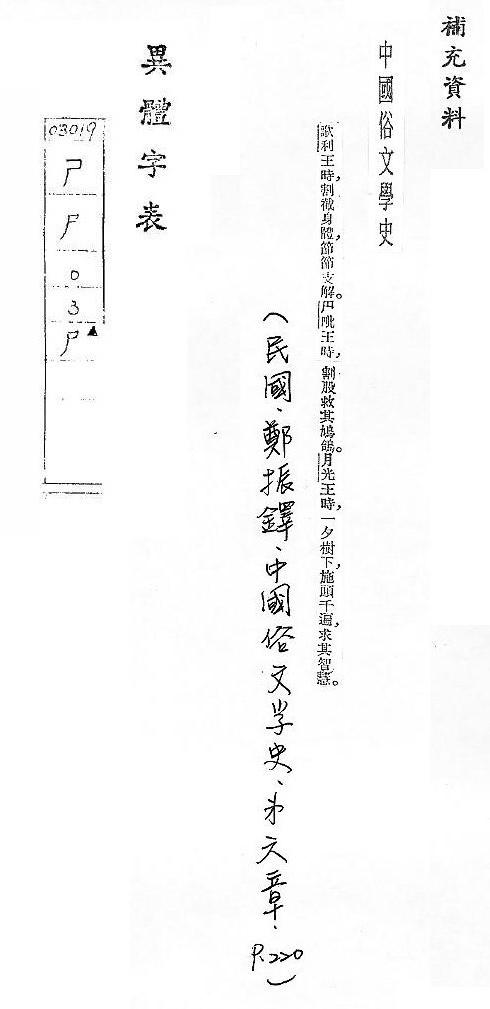 補充資料
中國俗文學史
歌利王時,割截身體,節節支解。尸毗王時,割股救其鳩鴿。月光王時,一夕樹下,施頭千遍,求其智慧。
(民國、鄭振鐸、中國俗文学史、第六章、P.220)
異體字表
03019
尸
尸
0
3
尸